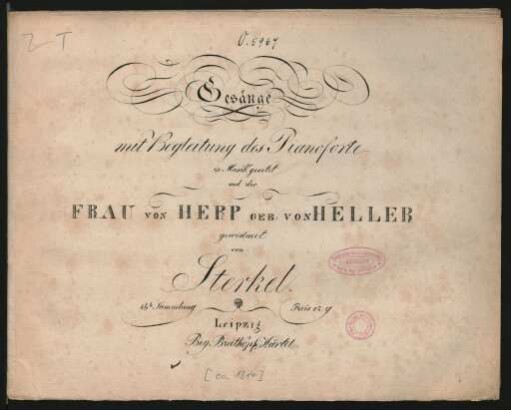 Z T
O. 5967
Gesänge
mit Begleitung des Pianoforte
in Musik gesetzt
und der
FRAU VON HEPP GEB. VON HELLER
gewidmet
von
Sterkel.
Sammlung
Leipzig
Bey Breitkopf u. Härtel.